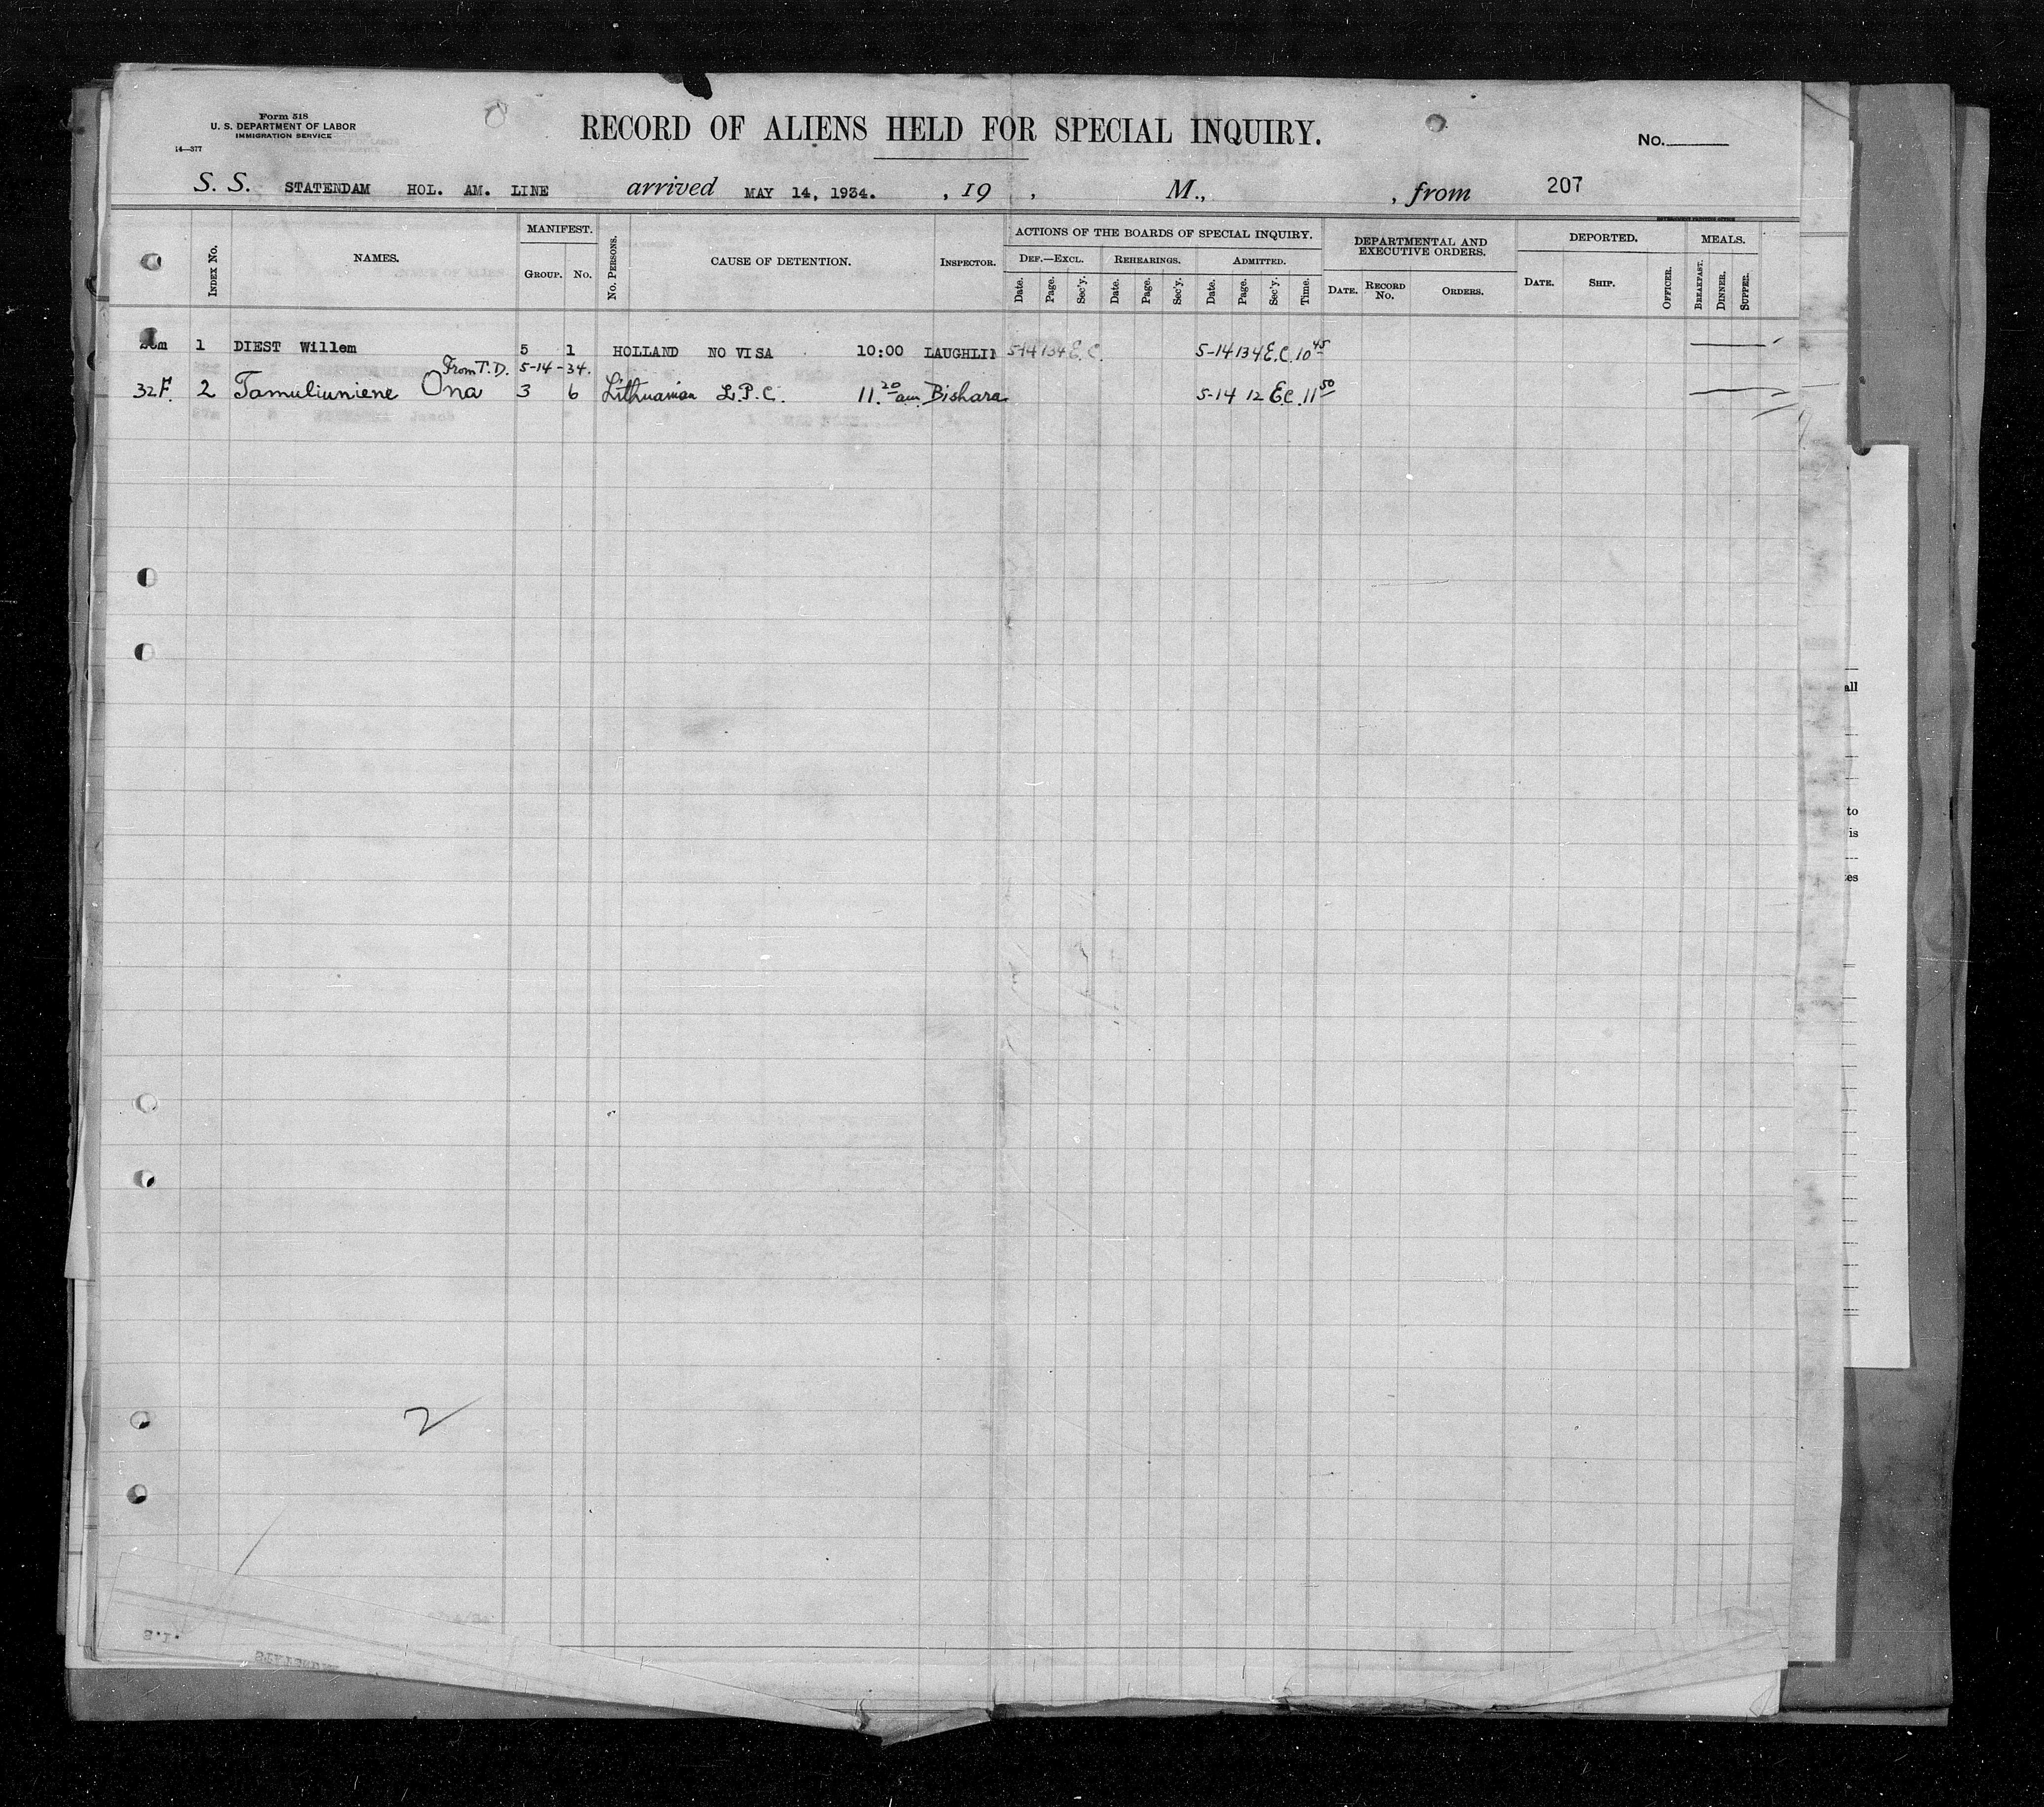 Form 518
U. S. DEPARTMENT OF LABOR
IMMIGRATION SERVICE
14—377
RECORD OF ALIENS HELD FOR SPECIAL INQUIRY.
No.
S. S. STATENDAM HOL. AM. LINE arrived MAY 14, 1934. , 19 , M., , from 207
INDEX NO. NAMES. MANIFEST. GROUP. NO. NO. PERSONS. CAUSE OF DETENTION. INSPECTOR.
ACTIONS OF THE BOARDS OF SPECIAL INQUIRY.
DEF.—EXCL. REHEARINGS. ADMITTED.
Date. Page. Sec'y. Date. Page. Sec'y. Date. Page. Sec'y. Time.
DEPARTMENTAL AND EXECUTIVE ORDERS.
DATE. RECORD NO. ORDERS.
DEPORTED.
DATE. SHIP. OFFICER.
MEALS.
BREAKFAST. DINNER. SUPPER.
1 DIEST Willem 5 1 HOLLAND NO VISA 10:00 LAUGHLIN 5-14 134 E.C. 5-14 134 E.C. 10 45
From T.D. 5-14-34.
32F. 2 Tamuliuniene Ona 3 6 Lithuanian L.P.C. 11.20 am Bishara 5-14 12 E.C. 11 50
2
all
to
is
S.I.